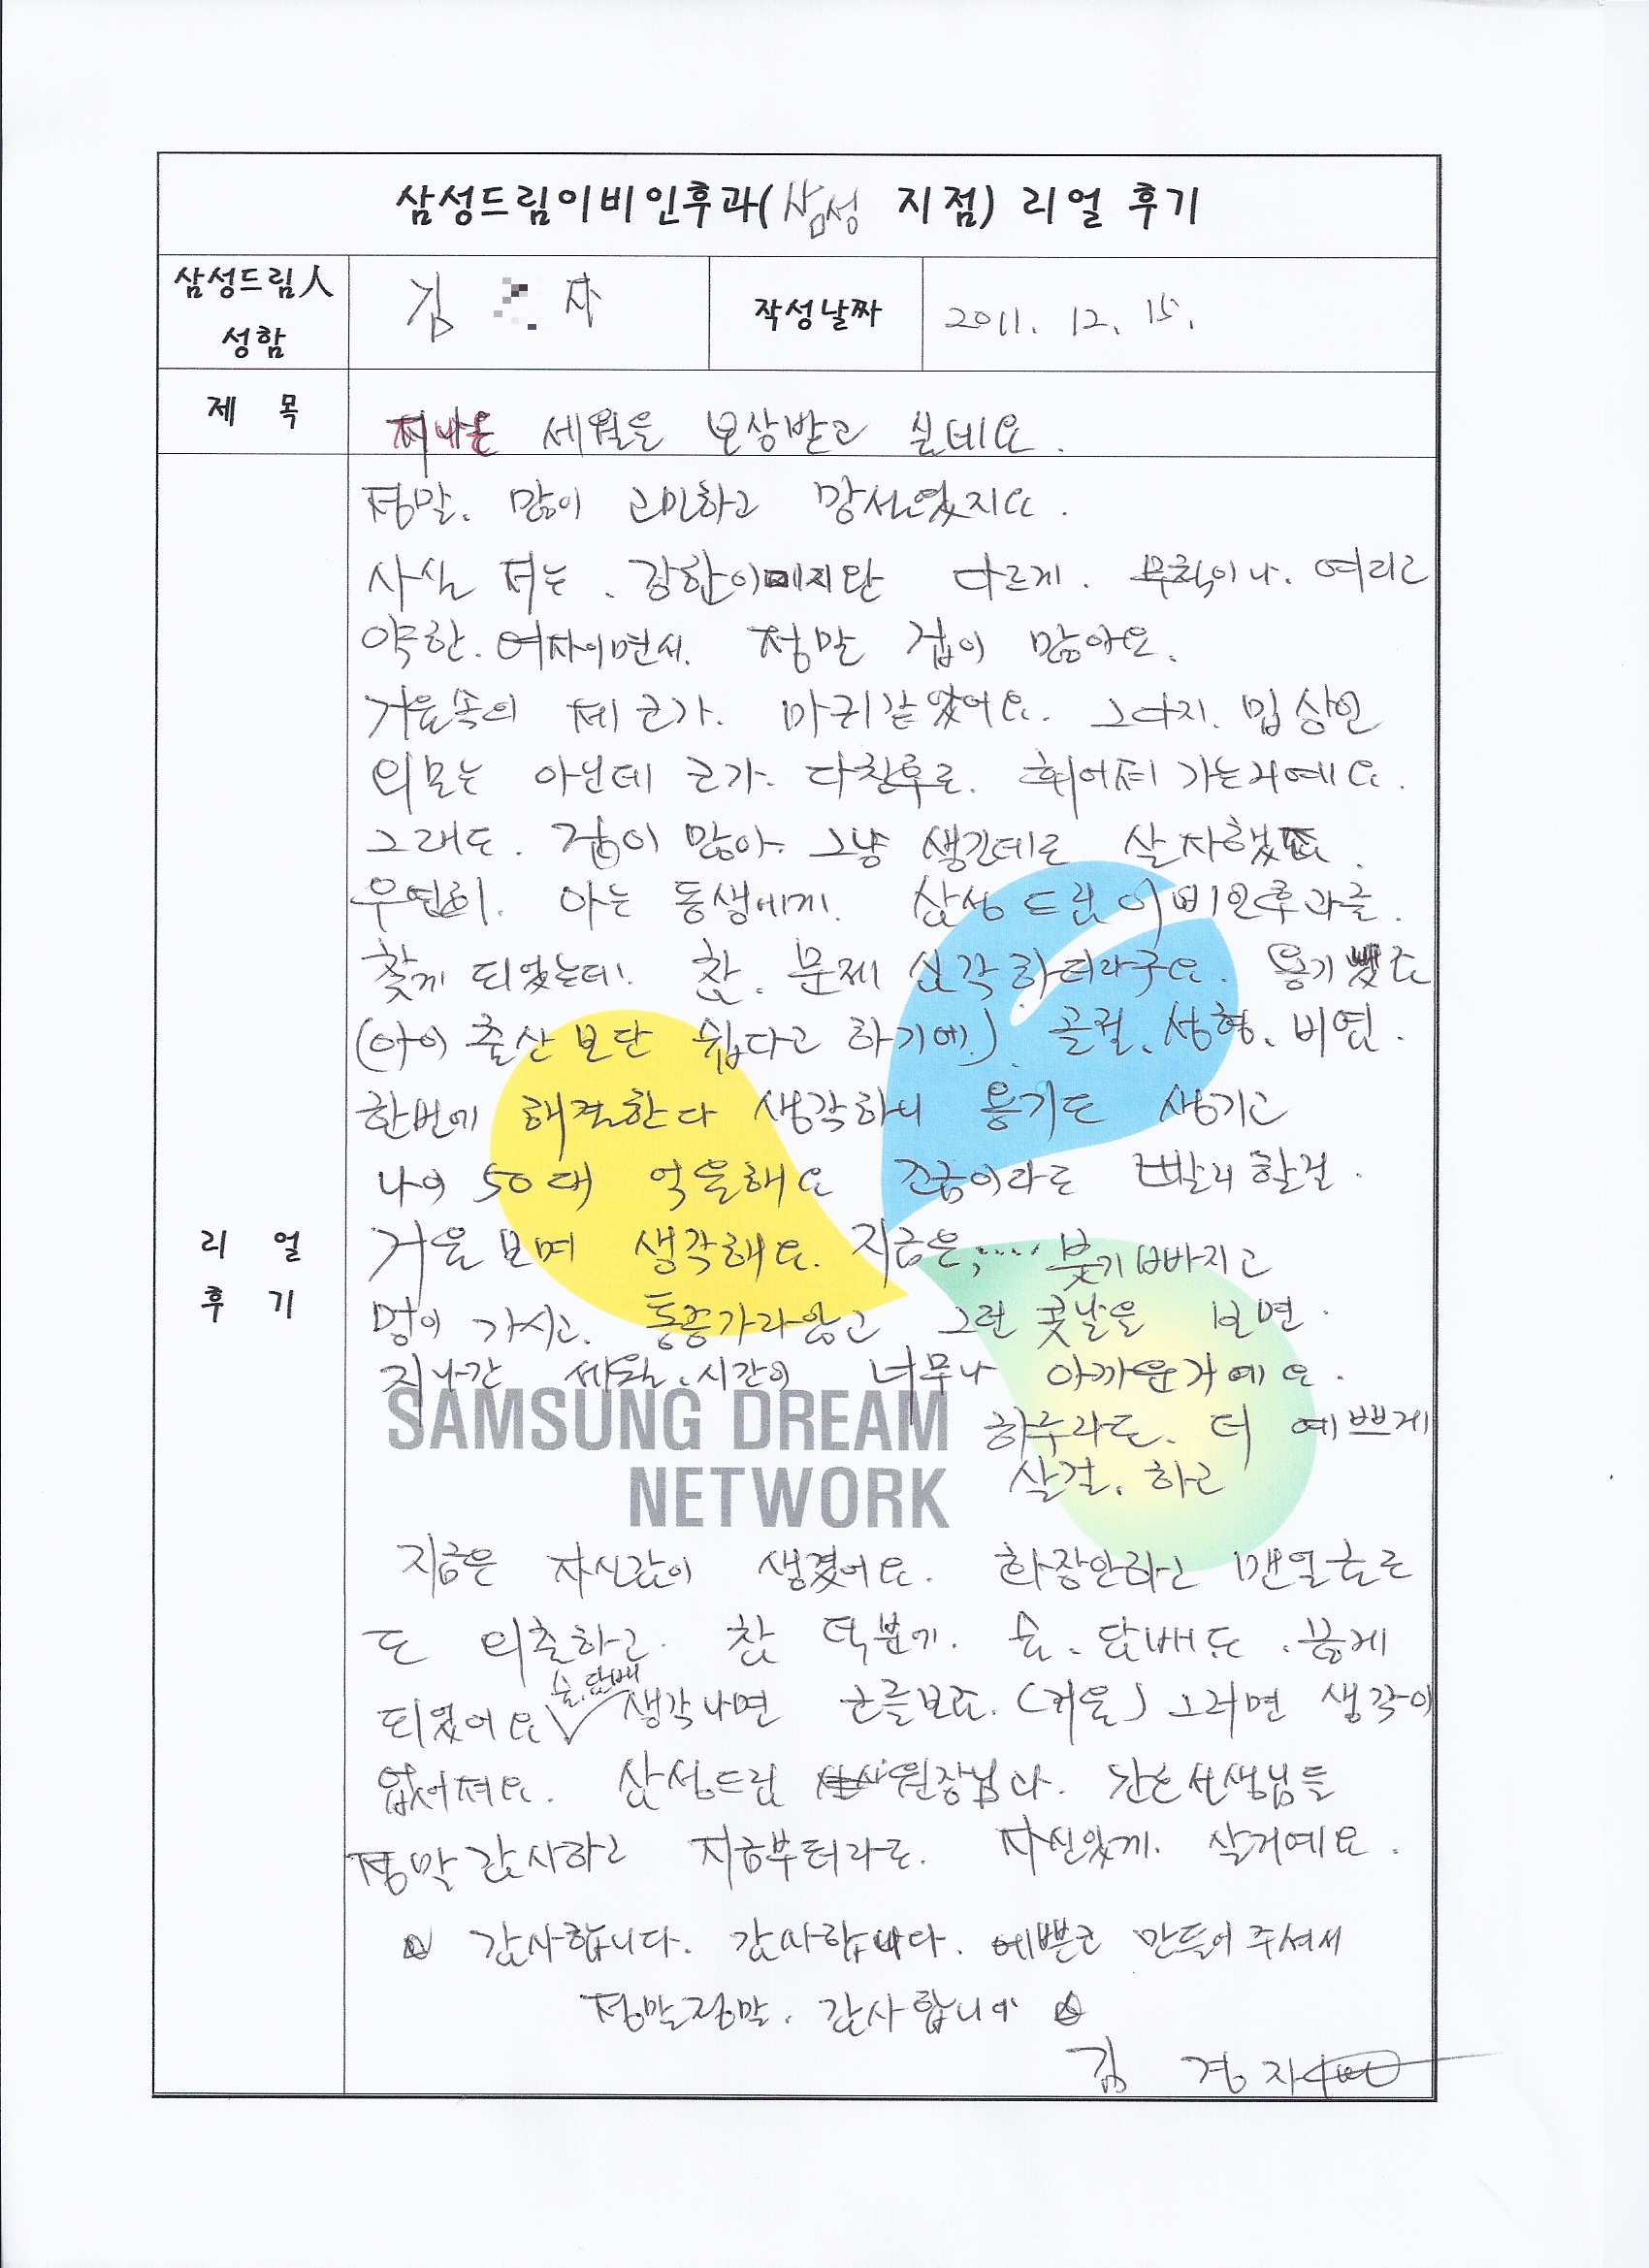 삼성드림이비인후과(삼성 지점) 리얼 후기
삼성드림人 성함
김 자
작성날짜
2011. 12. 15.
제 목
지나온 세월을 보상받고 싶데요.
리 얼 후 기
정말. 많이 고민하고 망설였지요.
사실 저는. 강한이미지완 다르게. 무척이나. 여리고
약한. 여자이면서. 정말 겁이 많아요.
거울속의 제 코가. 마귀같았어요. 그다지. 밉상인
외모는 아닌데 코가. 다친후로. 휘어져 가는거예요.
그래도. 겁이 많아. 그냥 생긴데로 살자했죠.
우연히. 아는 동생에게. 삼성드림이비인후과를.
찾게 되었는데! 참. 문제 심각하더라구요. 용기냈죠
(아이 출산보단 쉽다고 하기에.) 골절. 성형. 비염.
한번에 해결한다 생각하니 용기도 생기고
나의 50대 억울해요 조금이라도 빨리할걸.
거울보며 생각해요. 지금은;.... 붓기빠지고
멍이 가시고. 통증가라앉고 그런 콧날을 보면.
지나간 세월.시간이 너무나 아까운거예요.
하루라도. 더 예쁘게
살걸. 하고
지금은 자신감이 생겼어요. 화장안하고 맨얼굴로
도 외출하고. 참 덕분에. 술.담배도.끊게
되었어요 술.담배 생각나면 코를보죠.(거울) 그러면 생각이
없어져요. 삼성드림 원장님과. 간호선생님들
정말감사하고 지금부터라도. 자신있게. 살거예요.
☆ 감사합니다. 감사합니다. 예쁜코 만들어주셔서
정말정말. 감사합니다 ☆
김 경 자
SAMSUNG DREAM
NETWORK